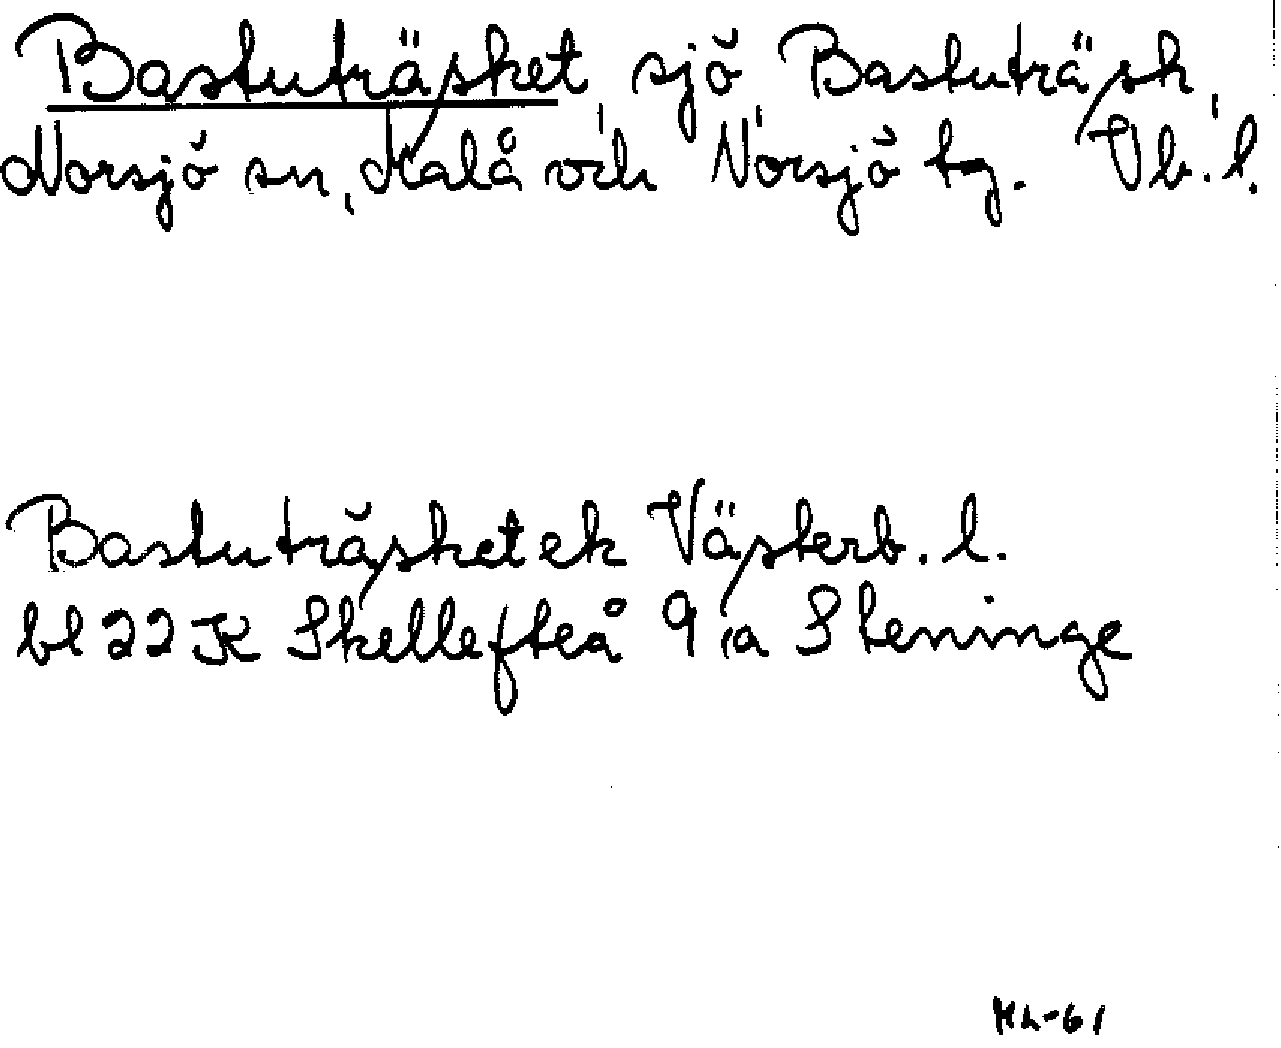 Bastuträsket, sjö, Bastuträsk,
Norsjö sn, Malå och Norsjö tg. Vb. l.
Bastuträsket ek Västerb. l.
bl 22 K Skellefteå 9 a Steninge
HL-61